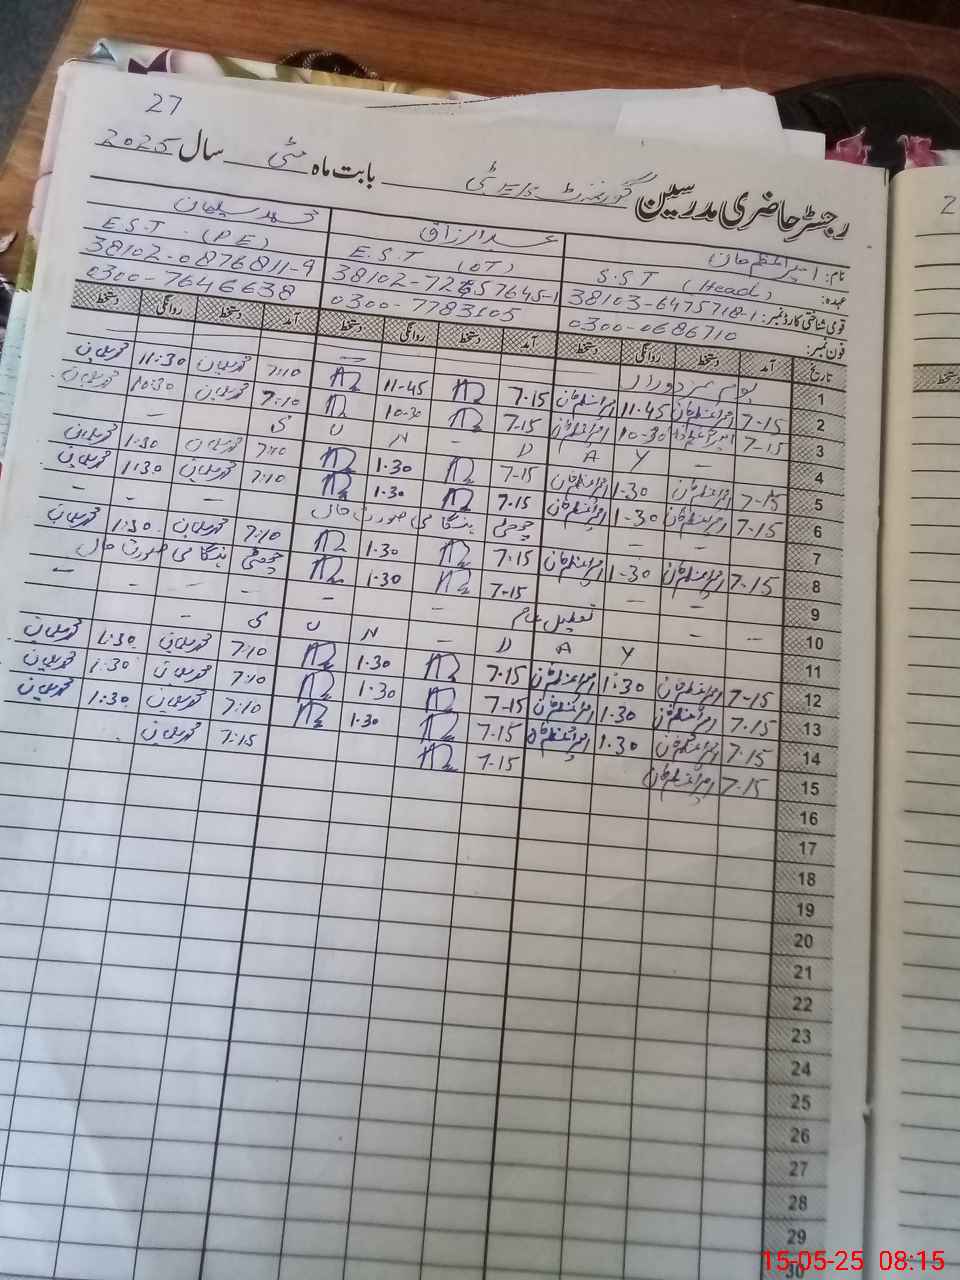 27
رجسٹر حاضری مدرسین گورنمنٹ بابت ماہ مئی سال 2025
نام: امیر اعظم خان عبدالرزاق محمد سلیمان
عہدہ: S.S.T (Head) E.S.T (OT) E.S.T (PE)
قومی شناختی کارڈ نمبر: 38103-6475718-1 38102-0876811-9
فون نمبر: 0300-0686710 0300-7783105 0300-7646638
تاریخ آمد دستخط روانگی دستخط آمد دستخط روانگی دستخط آمد دستخط روانگی دستخط
1 یوم مزدوراں
2 7.15 امیر اعظم خان 11.45 امیر اعظم خان 7.15 11-45 7:10 محمد سلیمان 11:30 محمد سلیمان
3 7-15 10-30 امیر اعظم خان 7.15 10-30 7:10 محمد سلیمان 10:30 محمد سلیمان
4 – Y A D – N U S –
5 7-15 امیر اعظم خان 1-30 امیر اعظم خان 7-15 1.30 7:10 محمد سلیمان 1:30 محمد سلیمان
6 7.15 امیر اعظم خان 1-30 امیر اعظم خان 7.15 1.30 7:10 محمد سلیمان 1:30 محمد سلیمان
7 – – چھٹی ہنگامی صورت حال – – –
8 7-15 امیر اعظم خان 1-30 امیر اعظم خان 7.15 1.30 7:10 محمد سلیمان 1:30 محمد سلیمان
9 – – 7-15 1.30 چھٹی ہنگامی صورت حال
10 – – تعطیل عام – – – – –
11 Y A D – N U S
12 7-15 امیر اعظم خان 1.30 امیر اعظم خان 7.15 1.30 7:10 محمد سلیمان 1:30 محمد سلیمان
13 7.15 امیر اعظم خان 1.30 امیر اعظم خان 7-15 1.30 7:10 محمد سلیمان 1:30 محمد سلیمان
14 7.15 امیر اعظم خان 1.30 امیر اعظم خان 7.15 1.30 7:10 محمد سلیمان 1:30 محمد سلیمان
15 7.15 امیر اعظم خان 7.15 7:15 محمد سلیمان
16
17
18
19
20
21
22
23
24
25
26
27
28
29
30
2
دستخط
15-05-25 08:15